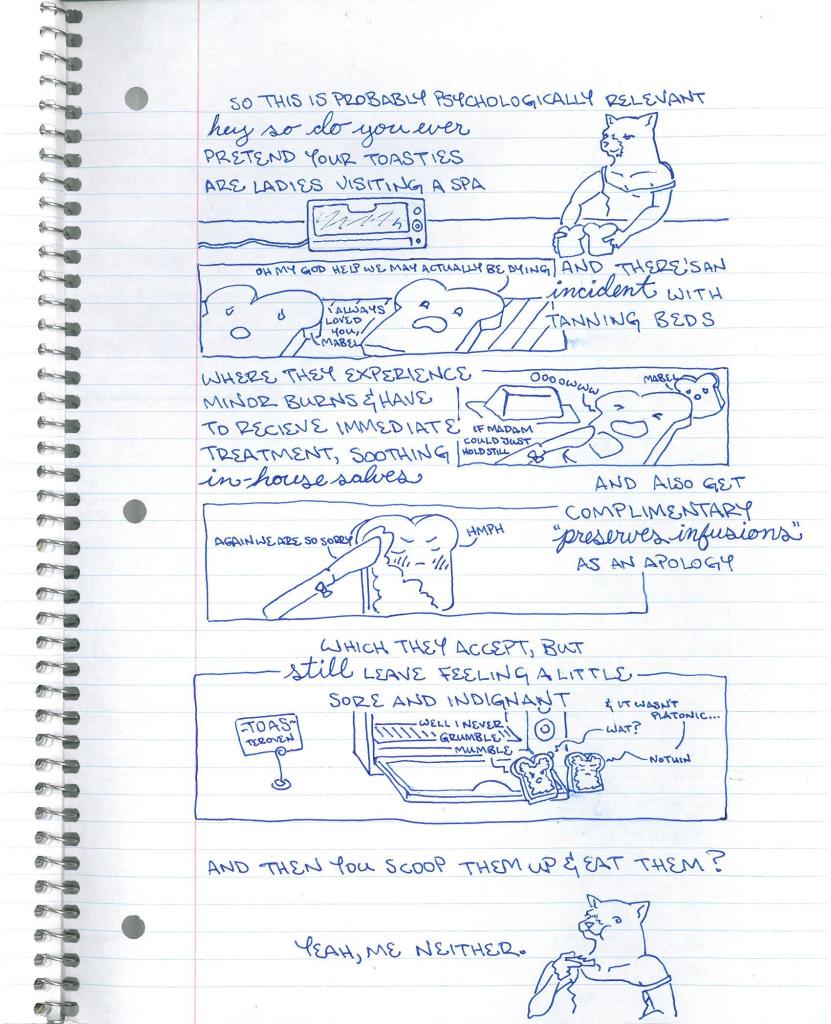 SO THIS IS PROBABLY PSYCHOLOGICALLY RELEVANT
hey so do you ever
PRETEND YOUR TOASTIES
ARE LADIES VISITING A SPA
OH MY GOD HELP WE MAY ACTUALLY BE DYING
I ALWAYS
LOVED
YOU,
MABEL
AND THERE'S AN
incident WITH
TANNING BEDS
WHERE THEY EXPERIENCE
MINOR BURNS & HAVE
TO RECIEVE IMMEDIATE
TREATMENT, SOOTHING
in-house salves
OOOOWWW
MABEL
IF MADAM
COULD JUST
HOLD STILL
AND ALSO GET
COMPLIMENTARY
"preserves infusions"
AS AN APOLOGY
AGAIN WE ARE SO SORRY
HMPH
WHICH THEY ACCEPT, BUT
still LEAVE FEELING A LITTLE
SORE AND INDIGNANT
-TOAS-
TEROVEN
WELL I NEVER
GRUMBLE
MUMBLE
& IT WASN'T
PLATONIC...
WAT?
NOTHIN
AND THEN YOU SCOOP THEM UP & EAT THEM?
YEAH, ME NEITHER.